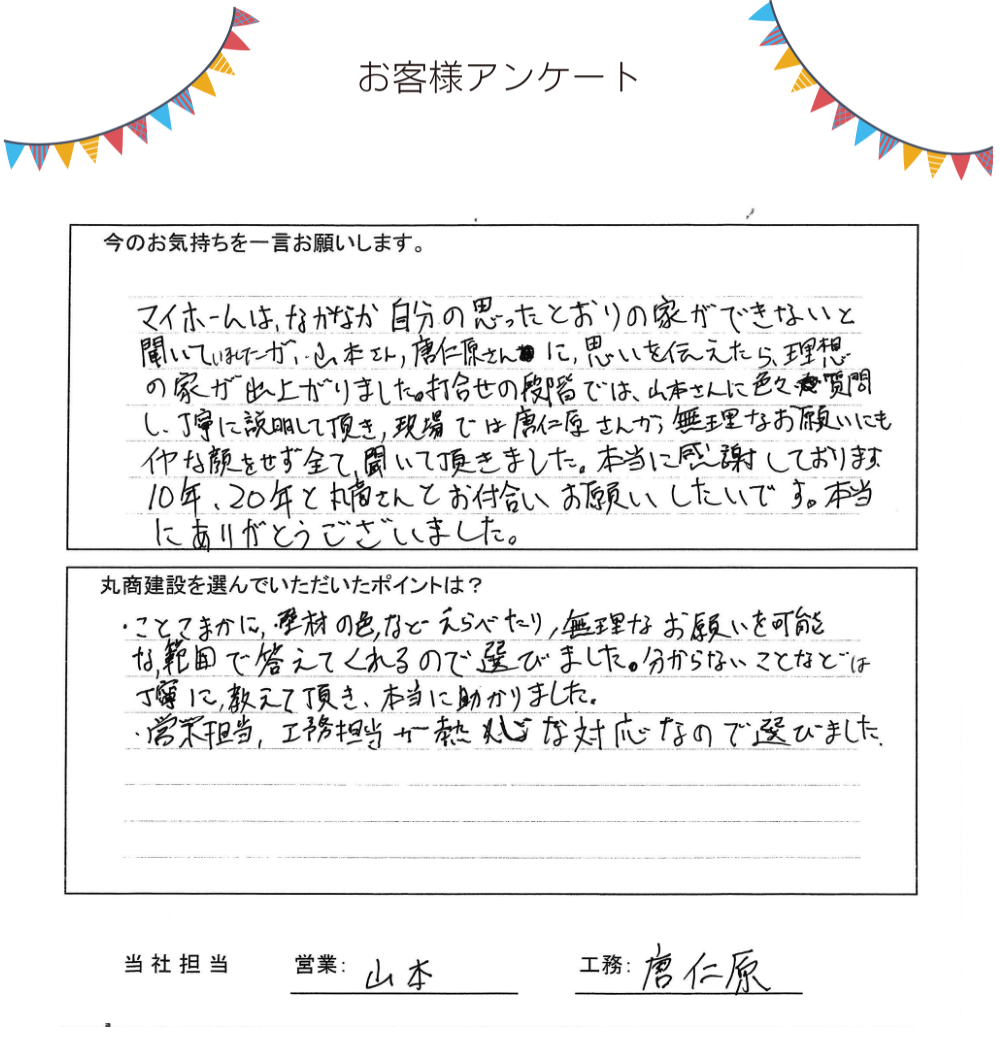 お客様アンケート
今のお気持ちを一言お願いします。
マイホームは、なかなか自分の思ったとおりの家ができないと
聞いていましたが、山本さん、唐仁原さんに、思いを伝えたら、理想
の家が出上がりました。打合せの段階では、山本さんに色々質問
し、丁寧に説明して頂き、現場では唐仁原さんが、無理なお願いにも
イヤな顔をせず全て、聞いて頂きました。本当に感謝しております
10年、20年と丸商さんとお付合いお願いしたいです。本当
にありがとうございました。
丸商建設を選んでいただいたポイントは？
・ことこまかに、壁材の色、などえらべたり、無理なお願いを可能
な、範囲で答えてくれるので選びました。分からないことなどは
丁寧に、教えて頂き、本当に助かりました。
・営業担当、工務担当が熱心な対応なので選びました。
当社担当 営業: 山本 工務: 唐仁原